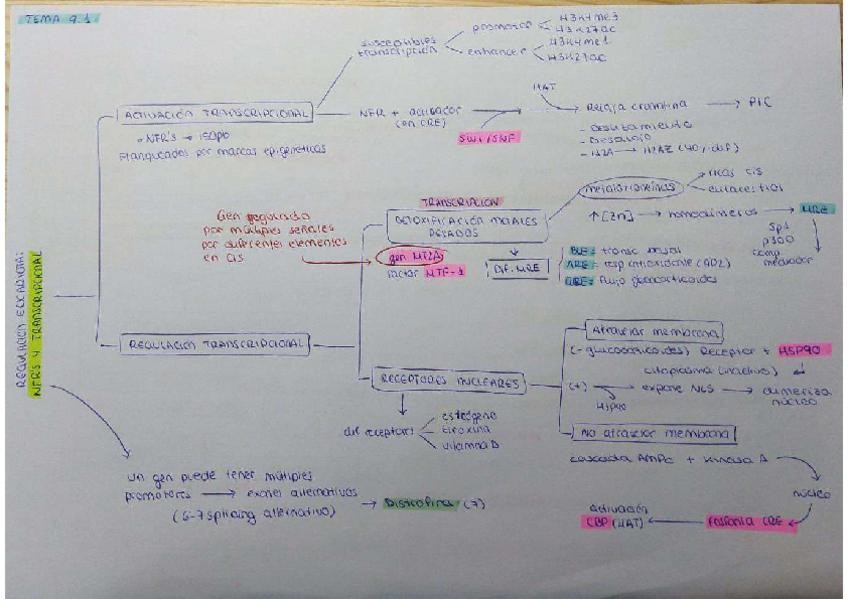 TEMA 9.1
susceptibles transcripción
promotor
H3K4me3
H3K27ac
enhancer
H3K4me1
H3K27ac
ACTIVACIÓN TRANSCRIPCIONAL
NFR's → 150pb
Flanqueados por marcas epigenéticas
NFR + activador
(en CRE)
SWI/SNF
HAT
Relaja cromatina → PIC
- Deslizamiento
- Desalojo
- H2A → H2AZ (
TRANSCRIPCIÓN
DETOXIFICACIÓN METALES
PESADOS
metalotioneínas
ricas cis
↑[Zn] → homodímeros → MRE
Sp1
p300
comp
mediador
Gen regulado
por múltiples señales
por diferentes elementos
en cis
gen MT2A
factor MTF-1
Dif. MRE
BLE = transc basal
ARE = resp antioxidante (AP2)
GRE = flujo glucocorticoides
REGULACIÓN EUCARIOTA:
NFR'S Y TRANSCRIPCIONAL
REGULACIÓN TRANSCRIPCIONAL
RECEPTORES NUCLEARES
dif receptor
estrógeno
tiroxina
vitamina D
Atraviesan membrana
(- glucocorticoides) Receptor + HSP90
citoplasma (inactivo)
(+) → expone NLS → dimeriza
núcleo
HSP90
No atraviesan membrana
cascada AMPc + kinasa A
núcleo
Fosforila CRE
Activación
CBP (HAT)
Un gen puede tener múltiples
promotores → exones alternativos
(6-7 splicing alternativo)
→ Distrofina (7)